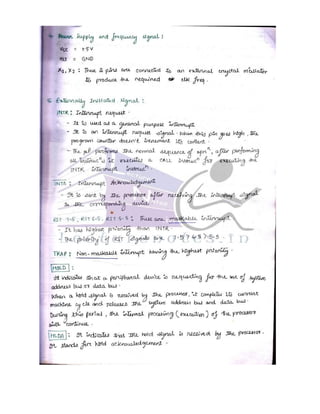 Power supply and frequency signal :
Vcc = +5V
Vss = GND
X1, X2 : These 2 pins are connected to an external crystal oscillator
to produce the required clk freq.
Externally Initiated signal :
INTR : Interrupt request -
- It is used as a general purpose interrupt
- It is an interrupt request signal. When this pin goes high, the
program counter doesn't increment its content.
- The μP performs the normal sequence of opn", after performing
all it executes a CALL for executing the
INTR interrupt
INTA : Interrupt Acknowledgement
- It is sent by the processor after receiving the interrupt signal
to the corresponding device.
RST 7.5, RST 6.5, RST 5.5 : These are maskable interrupt
- It has highest priority than INTR
- The priority of RST signals are : 7.5 > 6.5 > 5.5
TRAP : Non-maskable interrupt having the highest priority.
HOLD :
It indicates that a peripheral device is requesting for the use of system
address bus or data bus.
When a hold signal is received by the processor, it completes its current
machine cycle and releases the system address bus and data bus.
During this period, the internal processing (execution) of the processor
will "continue".
HLDA : It indicates that the hold signal is received by the processor.
It stands for hold acknowledgement.